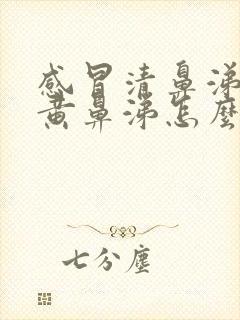 感冒清鼻涕
黄鼻涕怎麼
七分塵